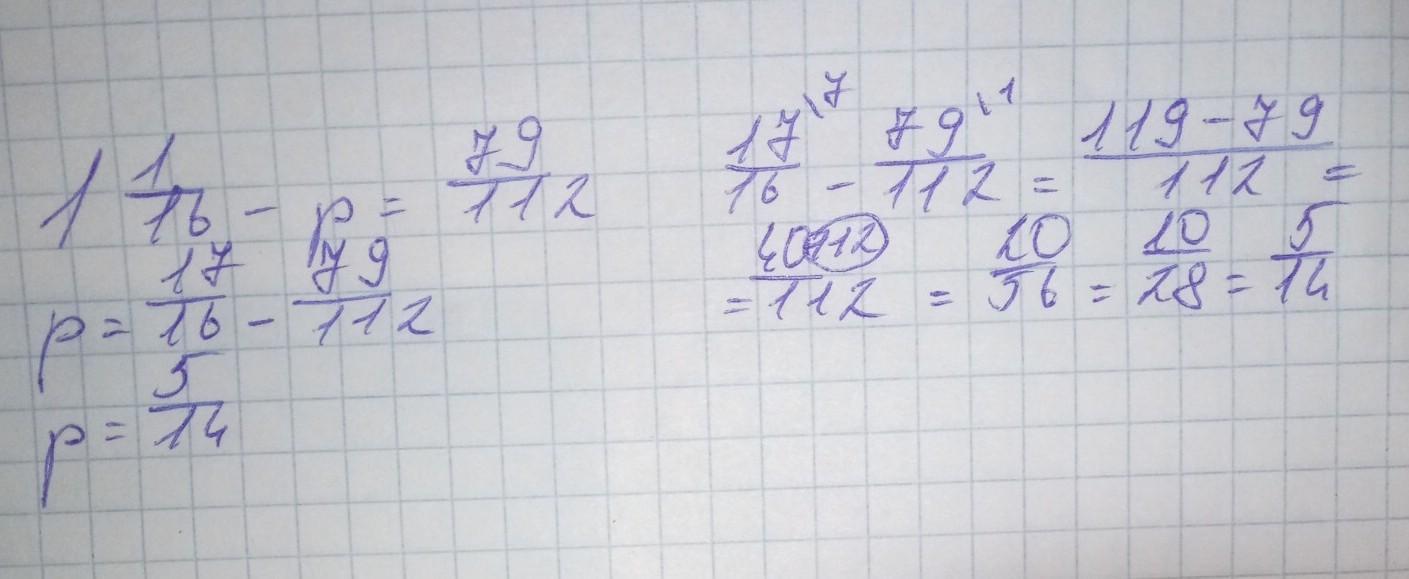 1 1/16 - p = 79/112
p = 17/16 - 79/112
p = 5/14
17/16 \7 - 79/112 \1 = (119 - 79)/112 =
= 40/112 = 20/56 = 10/28 = 5/14